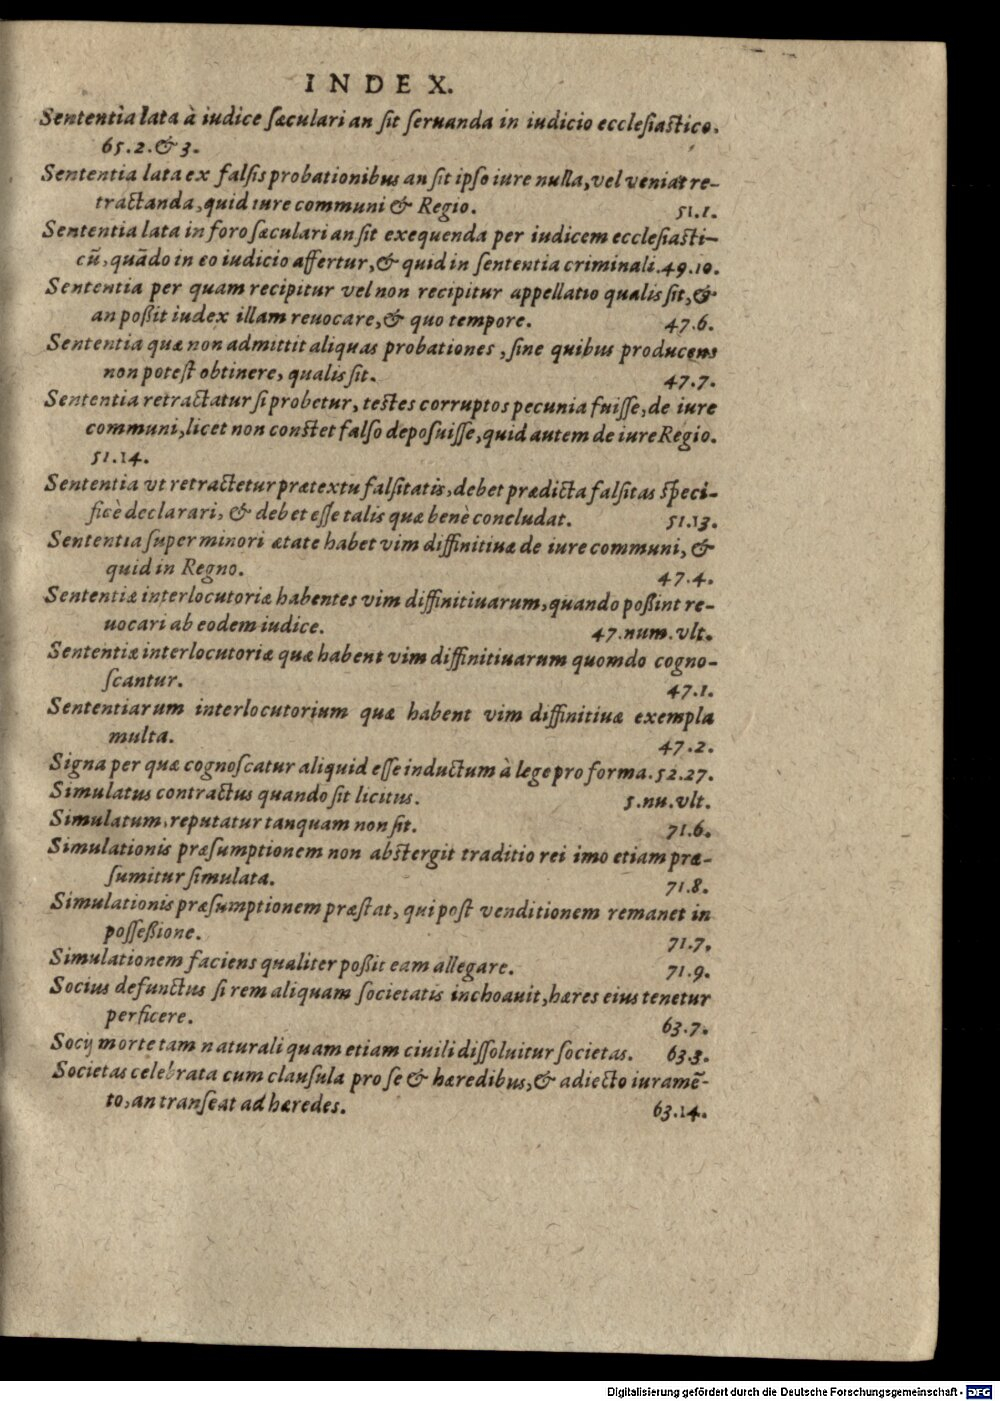 INDEX.
Sententia lata à iudice ſæculari an ſit ſeruanda in iudicio eccleſiaſtico.
65.2.& 3.
Sententia lata ex falſis probationibus an ſit ipſo iure nulla, vel veniat re-
tractanda, quid iure communi & Regio. 51.1.
Sententia lata in foro ſæculari an ſit exequenda per iudicem eccleſiaſti-
cū, quādo in eo iudicio affertur, & quid in ſententia criminali. 49.10.
Sententia per quam recipitur vel non recipitur appellatio qualis ſit, &
an poßit iudex illam reuocare, & quo tempore. 47.6.
Sententia quæ non admittit aliquas probationes, ſine quibus producens
non poteſt obtinere, qualis ſit. 47.7.
Sententia retractatur ſi probetur, teſtes corruptos pecunia fuiſſe, de iure
communi, licet non conſtet falſo depoſuiſſe, quid autem de iure Regio.
51.14.
Sententia vt retractetur prætextu falſitatis, debet prædicta falſitas ſpeci-
ficè declarari, & debet eſſe talis quæ benè concludat. 51.13.
Sententia ſuper minori ætate habet vim diffinitiuæ de iure communi, &
quid in Regno. 47.4.
Sententiæ interlocutoriæ habentes vim diffinitiuarum, quando poßint re-
uocari ab eodem iudice. 47.num.vlt.
Sententiæ interlocutoriæ quæ habent vim diffinitiuarum quomdo cogno-
ſcantur. 47.1.
Sententiarum interlocutorium quæ habent vim diffinitiuæ exempla
multa. 47.2.
Signa per quæ cognoſcatur aliquid eſſe inductum à lege pro forma. 52.27.
Simulatus contractus quando ſit licitus. 5.nu.vlt.
Simulatum, reputatur tanquam non ſit. 71.6.
Simulationis præſumptionem non abſtergit traditio rei imo etiam præ-
ſumitur ſimulata. 71.8.
Simulationis præſumptionem præſtat, qui poſt venditionem remanet in
poſſeßione. 71.7.
Simulationem faciens qualiter poßit eam allegare. 71.9.
Socius defunctus ſi rem aliquam ſocietatis inchoauit, hæres eius tenetur
perficere. 63.7.
Socij morte tam naturali quam etiam ciuili diſſoluitur ſocietas. 63.3.
Societas celebrata cum clauſula pro ſe & hæredibus, & adiecto iuramē-
to, an tranſeat ad hæredes. 63.14.
Digitalisierung gefördert durch die Deutsche Forschungsgemeinschaft - DFG